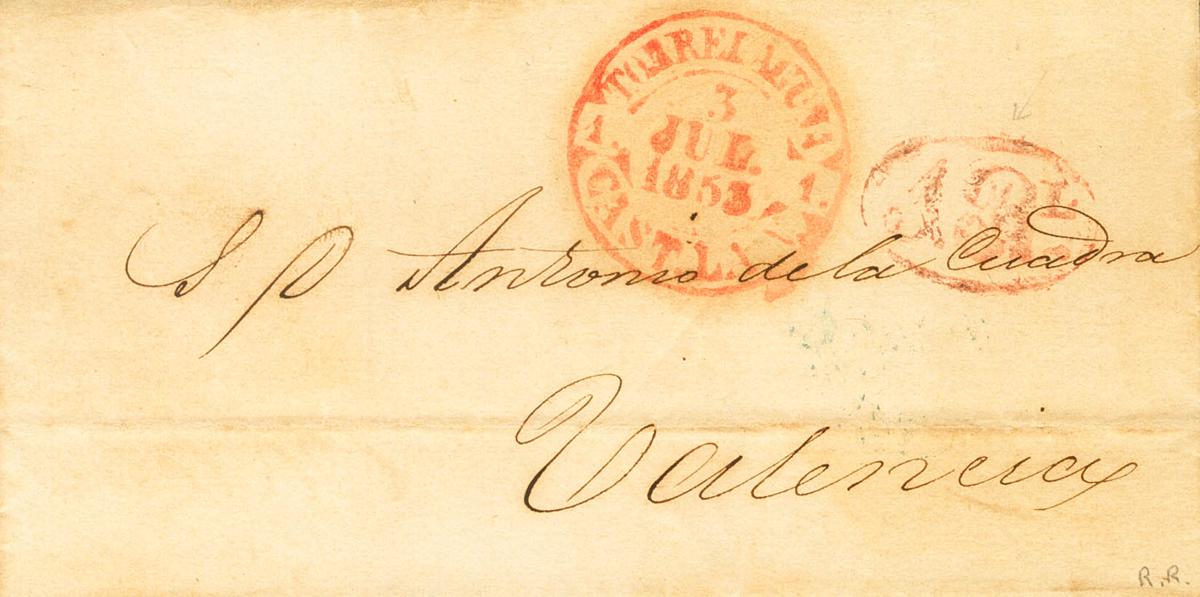 TORRELAGUNA
3
JUL.
1853
CAST. LA N.
1R
S D Antonio de la Cuadra
Valencia
R.R.